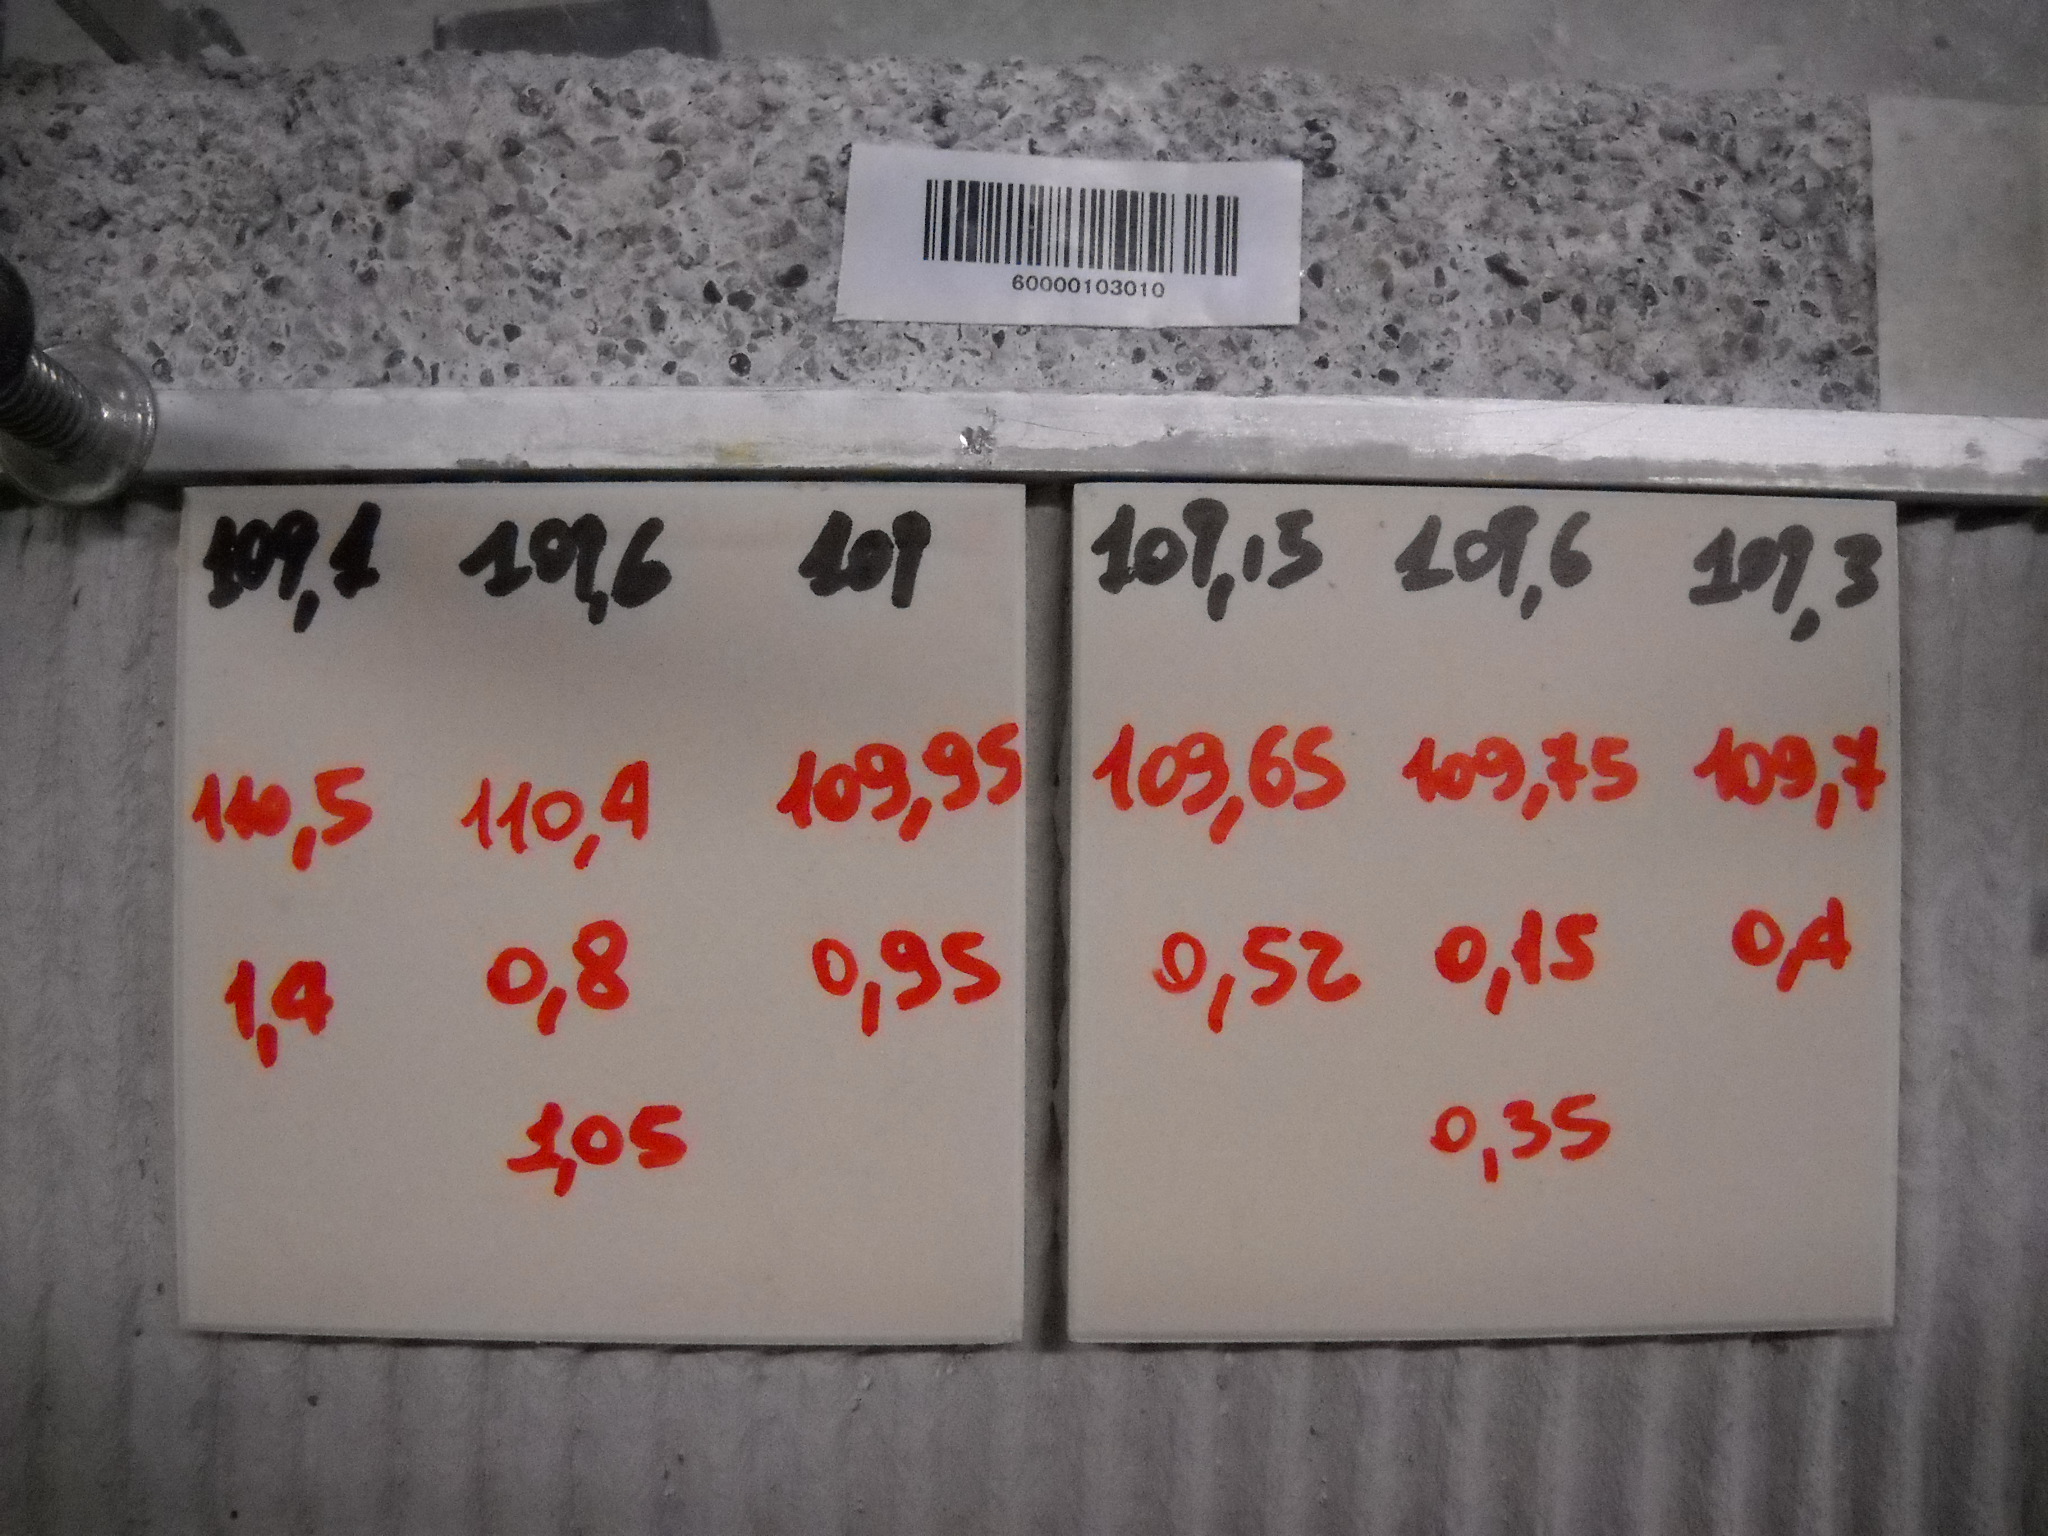 60000103010
109,1 109,6 109
110,5 110,4 109,95
1,4 0,8 0,95
1,05
109,13 109,6 109,3
109,65 109,75 109,7
0,52 0,15 0,4
0,35